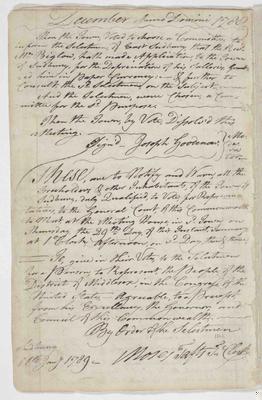 December Anno Domini 1788
Then the Town Voted to choose a Committee, to
inform the Selectmen of East Sudbury, that the Revd
Mr. Biglow, hath made Application to the Town
of Sudbury, for the Depreciation of his Sallery
him in Paper Currency — & further to
Consult the Sd. Selectmen on the Subject
and the Selectmen were Chosen a Com-
mittee for the Sd. Purpose —
Then the Town, by Vote Dissolv'd this
Meeting.
Sign'd Joseph Goodenow Mode-
rator
These, are to Notify and Warn all the
Freeholders & other Inhabitants, of the Town of
Sudbury, duly Qualified, to Vote for Represen-
tatives to the General Court of this Commonwealth
to Meet at the Meeting House in sd. Town, on
Thursday the 29th Day, of this Instant January
at 1 Clock Afternoon, on sd. Day, then & there,
To give in their Votes to the Selectmen
for a Person, to Represent the People of the
District of Middlesex, in the Congress of the
United States — Agreeable, to a Precept
from his Excellency, the Governor, and
Council of this Commonwealth —
By Order of the Selectmen
Sudbury
Jany. 1789 —
Moses
Clerk